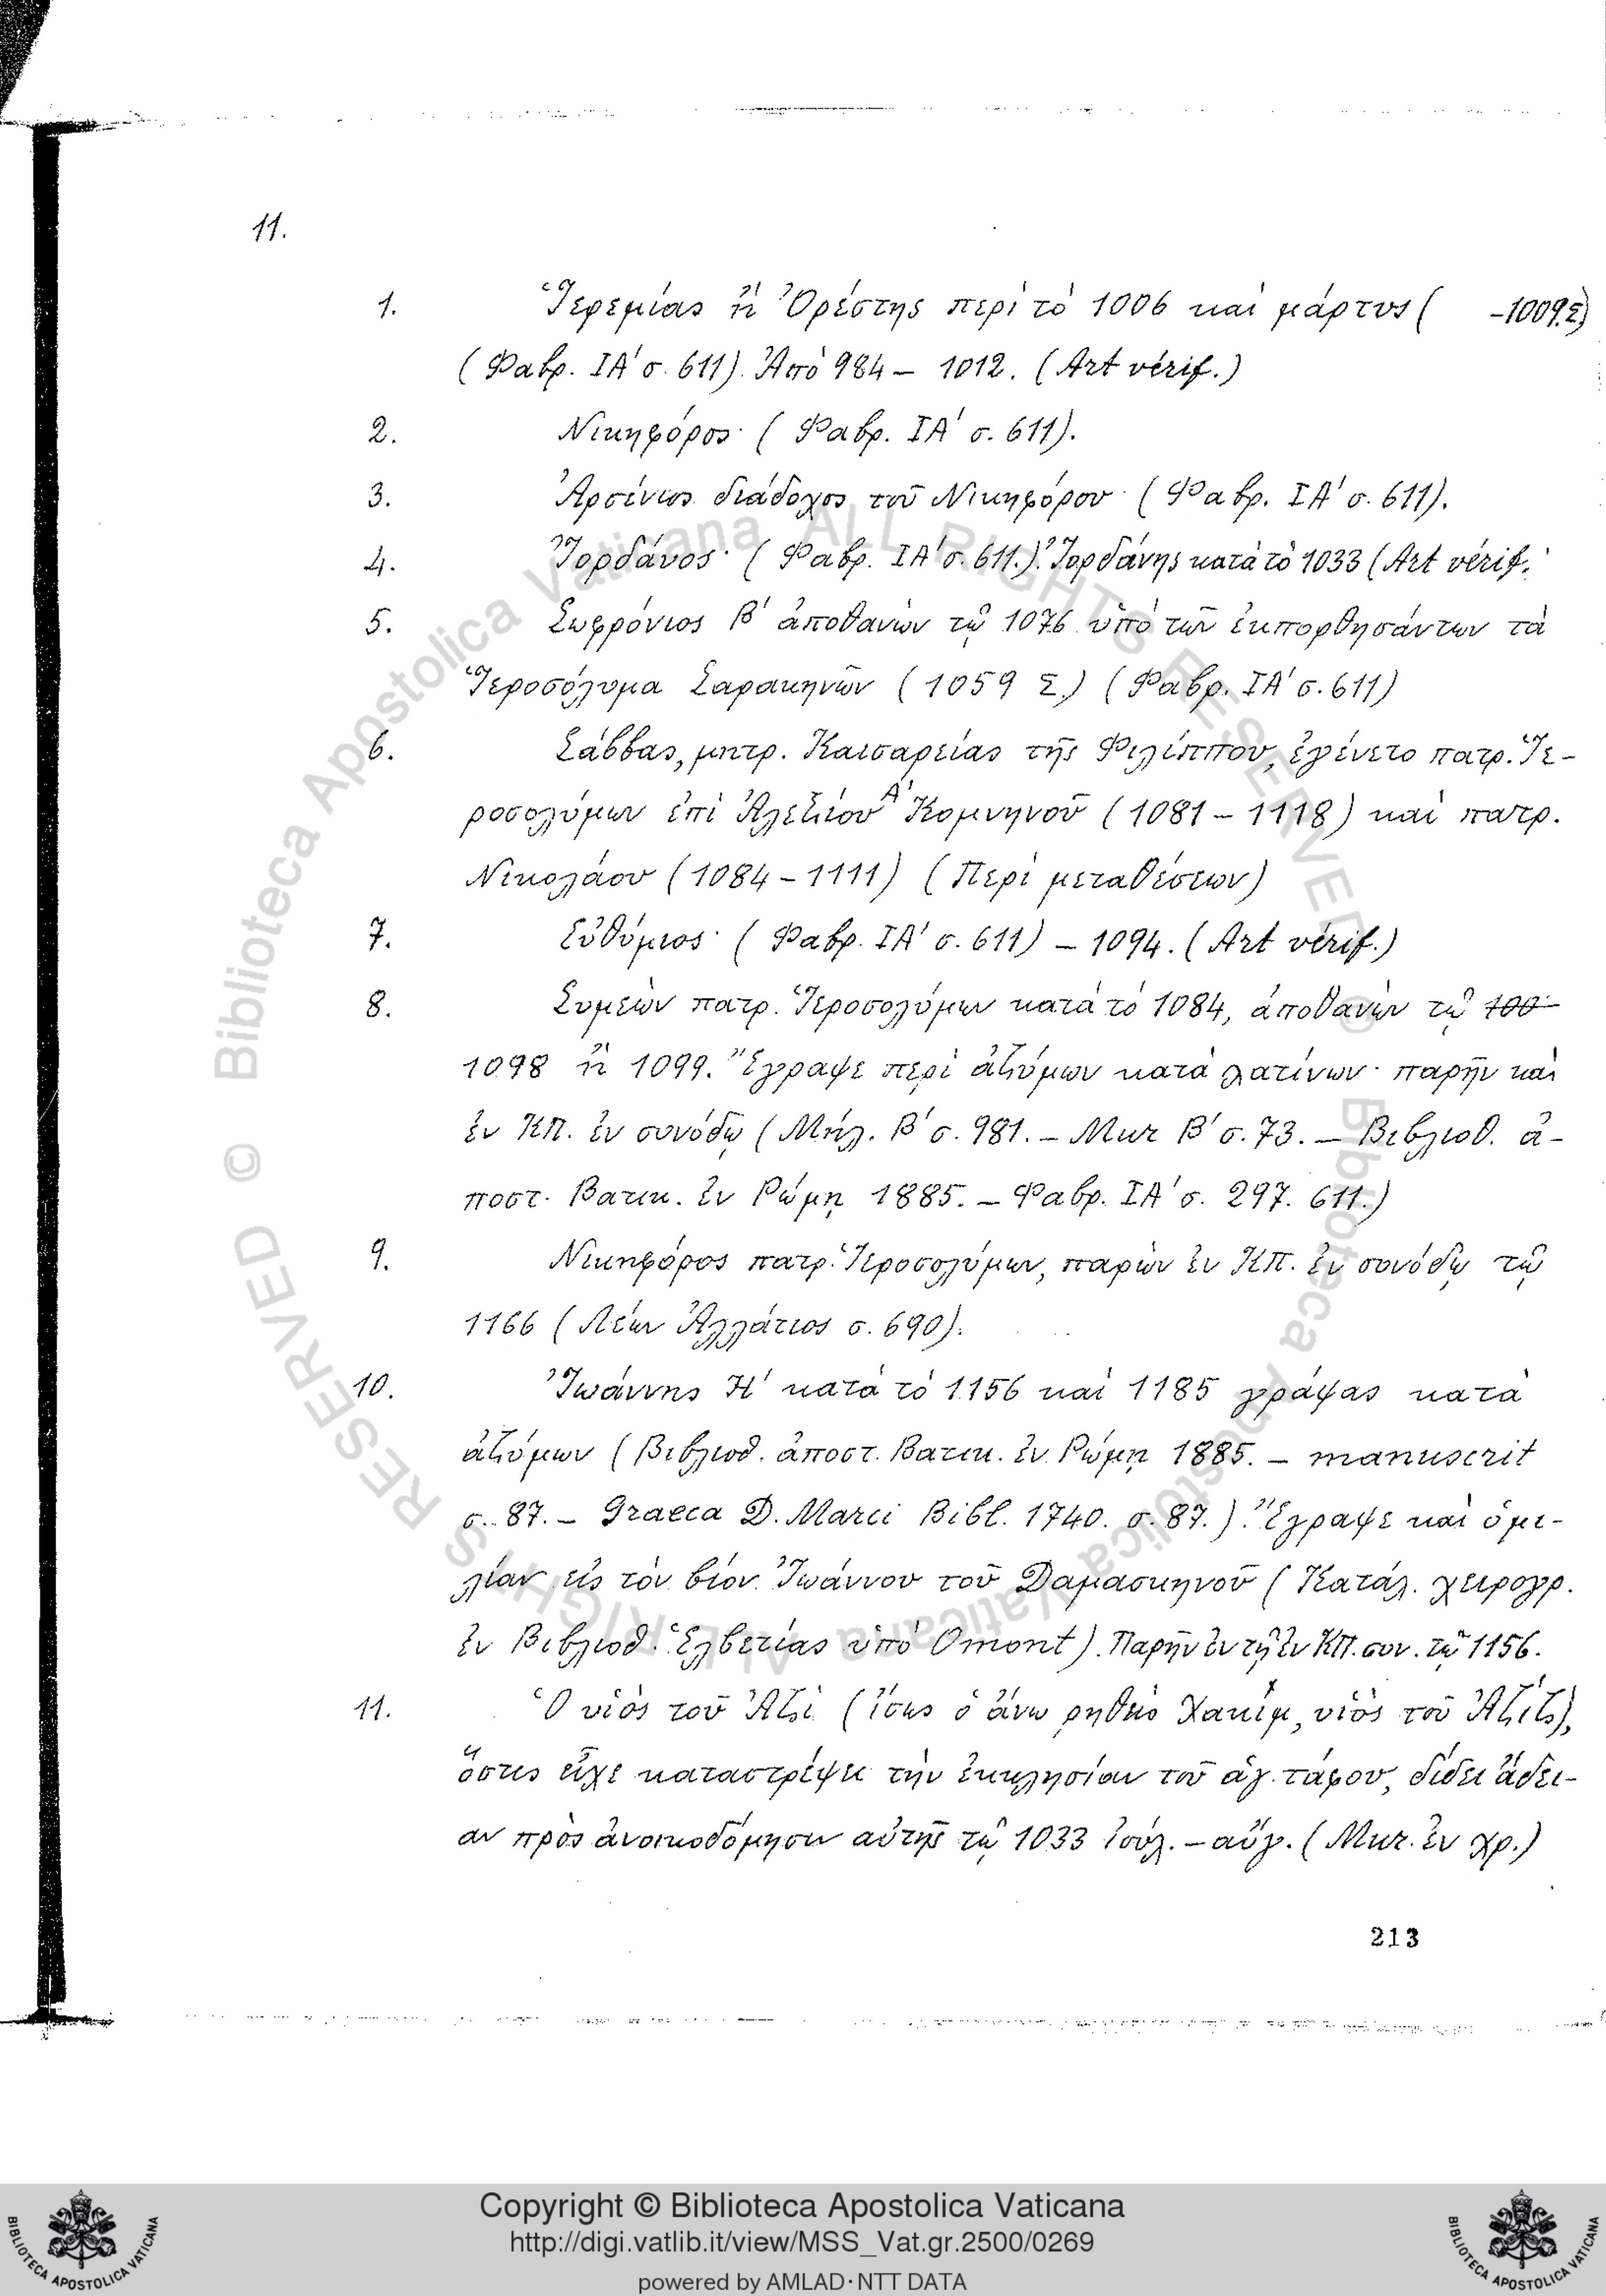 11.
1. Ἱερεμίας ἢ Ὀρέστης περὶ τὸ 1006 καὶ μάρτυς ( -1009.Σ)
(Φαβρ. ΙΑ′ σ. 611). Ἀπὸ 984 – 1012. (Art vérif.)
2. Νικηφόρος· (Φαβρ. ΙΑ′ σ. 611).
3. Ἀρσένιος διάδοχος τοῦ Νικηφόρου· (Φαβρ. ΙΑ′ σ. 611).
4. Ἰορδάνος· (Φαβρ. ΙΑ′ σ. 611.). Ἰορδάνης κατὰ τὸ 1033 (Art vérif.
5. Σωφρόνιος Β′ ἀποθανὼν τῷ 1076 ὑπὸ τῶν ἐκπορθησάντων τὰ
Ἱεροσόλυμα Σαρακηνῶν (1059 Σ.) (Φαβρ. ΙΑ′ σ. 611)
6. Σάββας, μητρ. Καισαρείας τῆς Φιλίππου, ἐγένετο πατρ. Ἱε-
ροσολύμων ἐπὶ Ἀλεξίου Α′ Κομνηνοῦ (1081 – 1118) καὶ πατρ.
Νικολάου (1084 – 1111) (Περὶ μεταθέσεων)
7. Εὐθύμιος· (Φαβρ. ΙΑ′ σ. 611) – 1094. (Art vérif.)
8. Συμεὼν πατρ. Ἱεροσολύμων κατὰ τὸ 1084, ἀποθανὼν τῷ 100
1098 ἢ 1099. Ἔγραψε περὶ ἀζύμων κατὰ λατίνων· παρῆν καὶ
ἐν ΚΠ. ἐν συνόδῳ (Μήλ. Β′ σ. 981. – Μικ Β′ σ. 73. – Βιβλιοθ. ἀ-
ποστ. Βατικ. ἐν Ρώμῃ 1885. – Φαβρ. ΙΑ′ σ. 297. 611.)
9. Νικηφόρος πατρ. Ἱεροσολύμων, παρὼν ἐν ΚΠ. ἐν συνόδῳ τῷ
1166 (Λέων Ἀλλάτιος σ. 690).
10. Ἰωάννης Η′ κατὰ τὸ 1156 καὶ 1185 γράψας κατὰ
ἀζύμων (Βιβλιοθ. ἀποστ. Βατικ. ἐν Ρώμῃ 1885. – manuscrit
σ. 87. – Graeca D. Marci Bibl. 1740. σ. 87.). Ἔγραψε καὶ ὁμι-
λίαν εἰς τὸν βίον Ἰωάννου τοῦ Δαμασκηνοῦ (Κατάλ. χειρογρ.
ἐν Βιβλιοθ. Ἑλβετίας ὑπὸ Omont). Παρῆν ἐν τῇ ἐν ΚΠ. συν. τῷ 1156.
11. Ὁ υἱὸς τοῦ Ἀζὶ (ἴσως ὁ ἄνω ρηθεὶς Χακίμ, υἱὸς τοῦ Ἀζίζ),
ὅστις εἶχε καταστρέψει τὴν ἐκκλησίαν τοῦ ἁγ. τάφου, δίδει ἄδει-
αν πρὸς ἀνοικοδόμησιν αὐτῆς τῷ 1033 ἰούλ. – αὔγ. (Μικ. ἐν χρ.)
213
© Biblioteca Apostolica Vaticana ALL RIGHTS RESERVED © Biblioteca Apostolica Vaticana ALL RIGHTS RESERVED
Copyright © Biblioteca Apostolica Vaticana
http://digi.vatlib.it/view/MSS_Vat.gr.2500/0269
powered by AMLAD·NTT DATA
BIBLIOTECA APOSTOLICA VATICANA
BIBLIOTECA APOSTOLICA VATICANA